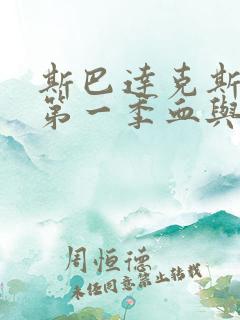 斯巴達克斯
第一季血與
周恒德
未经同意禁止转载